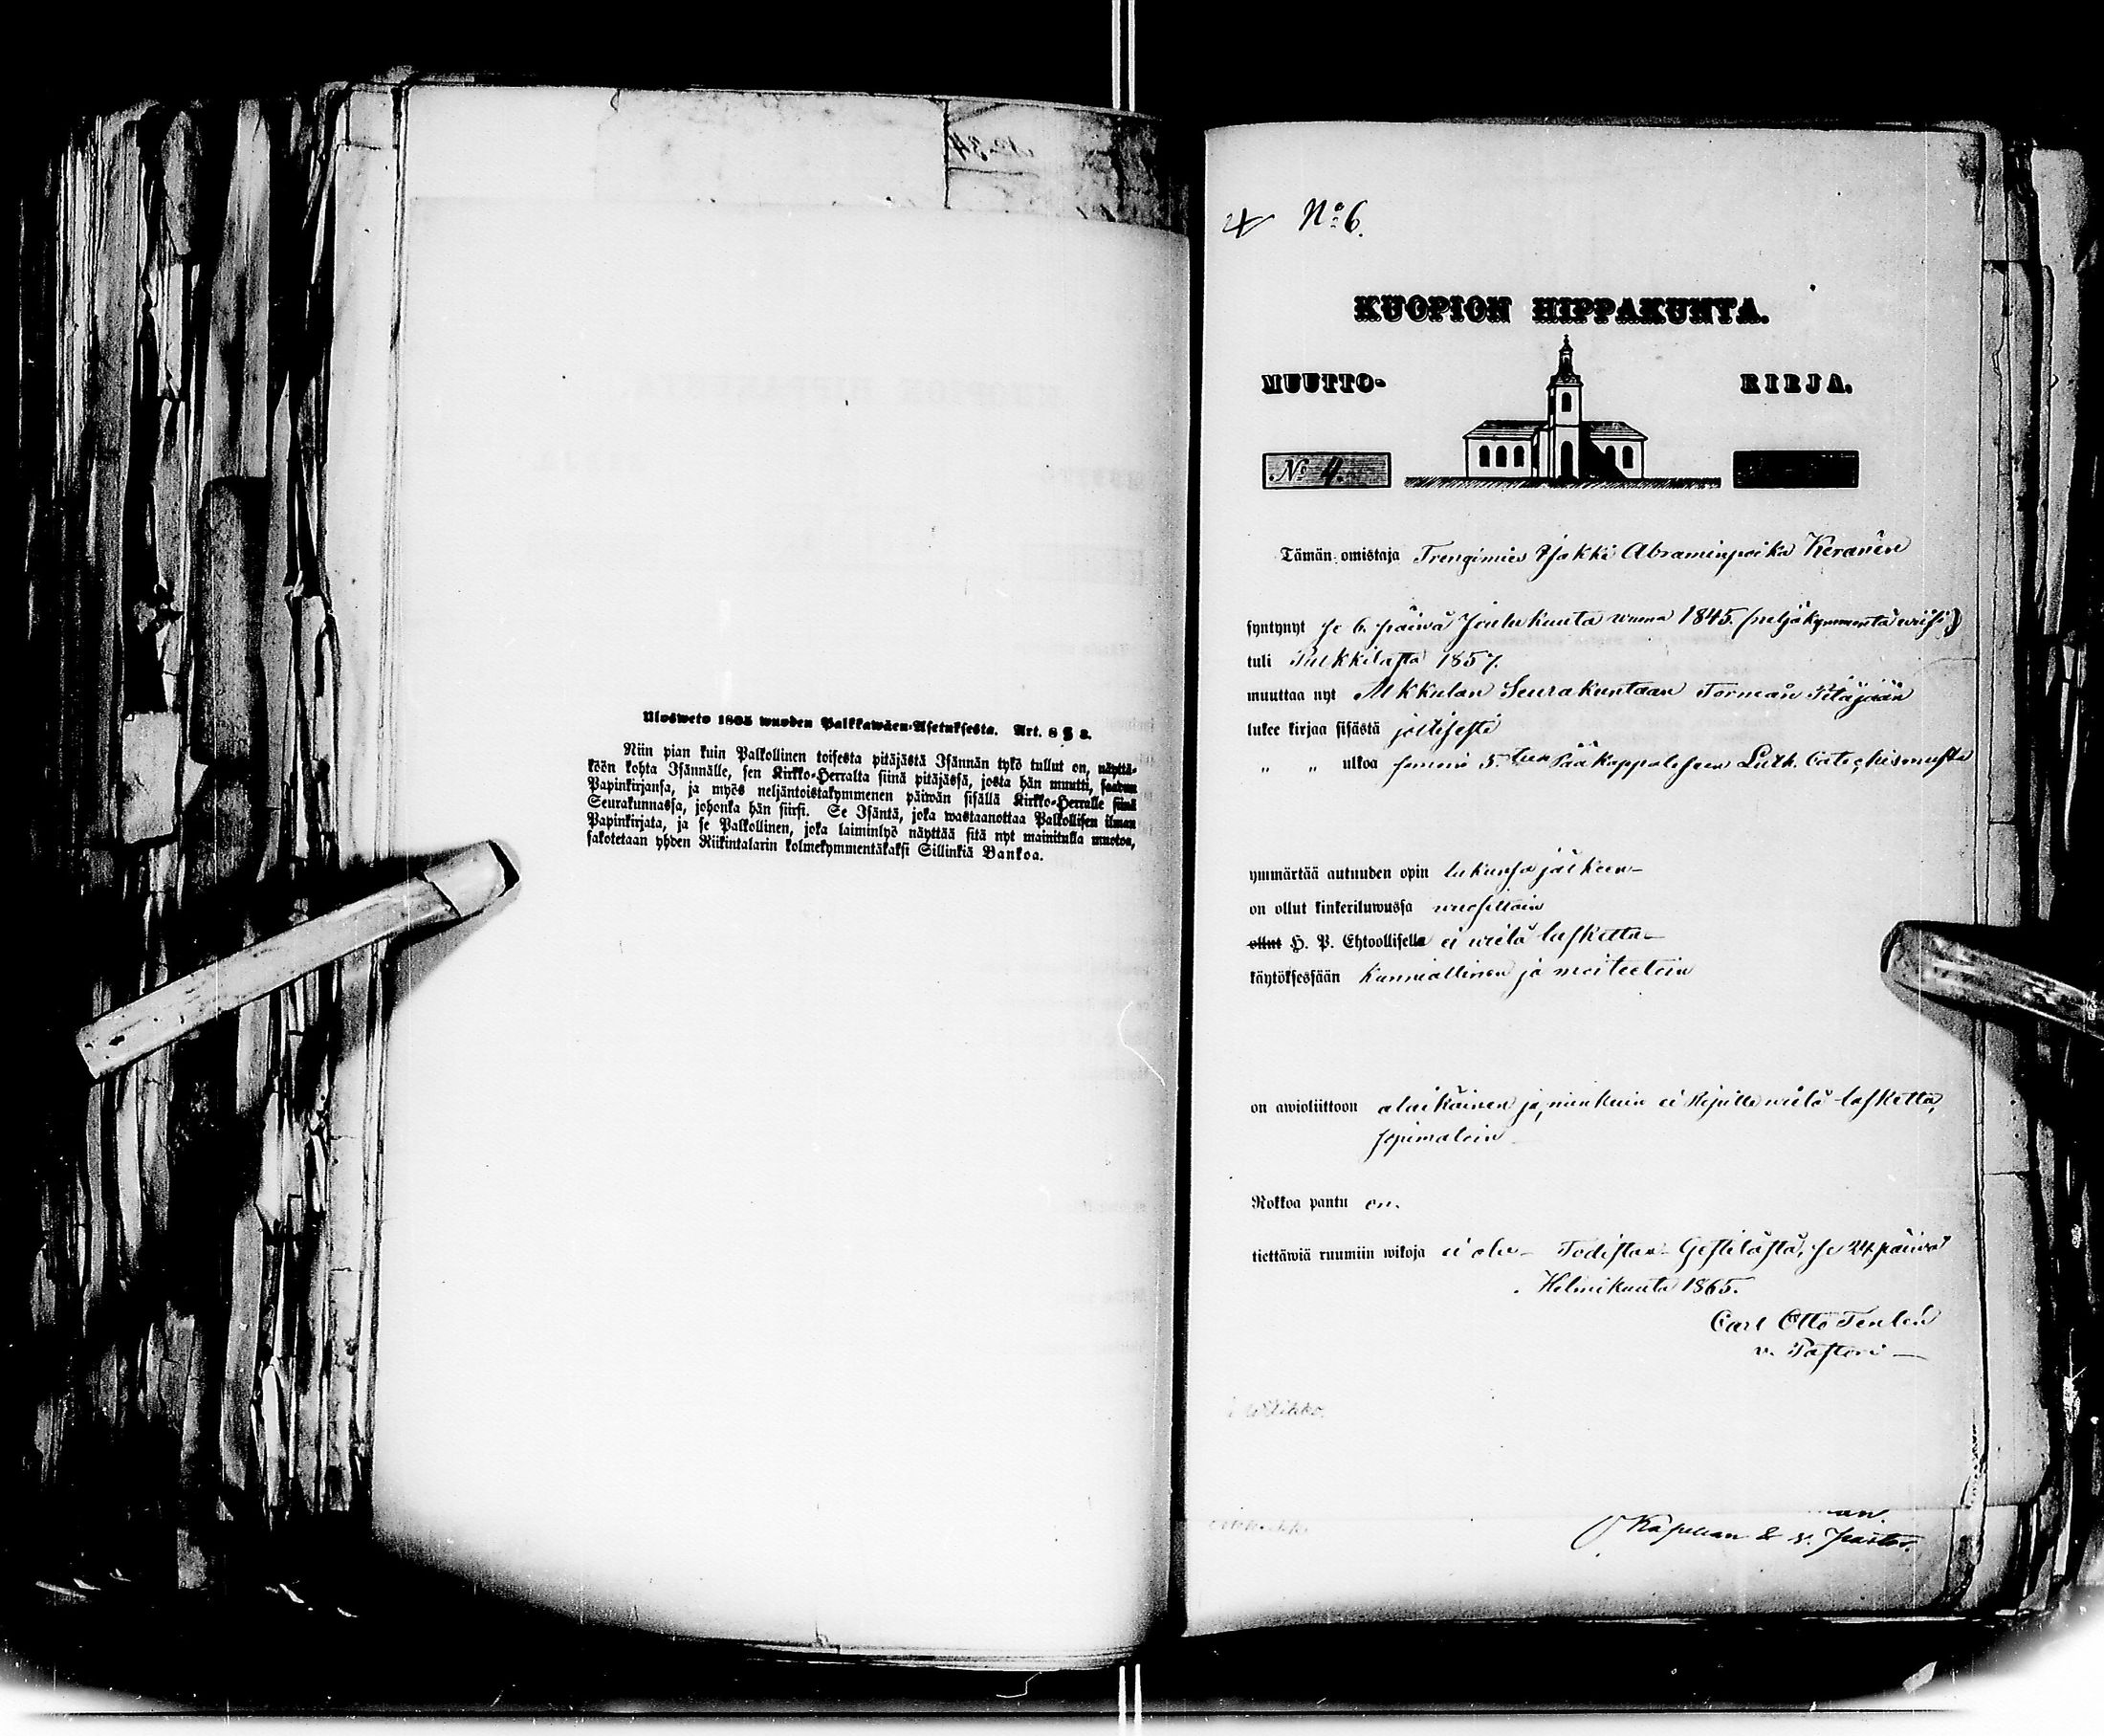 Ulosweto 1805 wuoden Palkkawäen-Asetuksesta. Art. 8 § 2.
Niin pian kuin Palkollinen toisesta pitäjästä Isännän tykö tullut on, näyttä-
köön kohta Isännälle, sen Kirkko-Herralta siinä pitäjässä, josta hän muutti, saadun
Papinkirjansa, ja myös neljäntoistakymmenen päiwän sisällä Kirkko-Herralle siinä
Seurakunnassa, johonka hän siirsi. Se Isäntä, joka wastaanottaa Palkollisen ilman
Papinkirjata, ja se Palkollinen, joka laiminlyö näyttää sitä nyt mainitulla muotoa,
sakotetaan yhden Riikintalarin kolmekymmentäkaksi Sillinkiä Bankoa.
No 6.
KUOPION HIPPAKUNTA.
MUUTTO- KIRJA.
No 4.
Tämän omistaja Trengimies Jakki Abraminpoika Keranen
syntynyt se 6. päiwä Joulukuuta wuona 1845. (neljäkymmentä wiisi)
tuli Pulkkilasta 1857.
muuttaa nyt Alkkulan Seurakuntaan Torneån Pitäjään
lukee kirjaa sisästä jollisesti
" " ulkoa samoin 5. Pääkappalehen Luth. Catechismusta
ymmärtää autuuden opin lukunsa jälkeen
on ollut kinkeriluwussa wuosittain
ollut H. P. Ehtoollisella ei wielä laskettu
käytöksessään kunniallinen ja moiteetoin
on awioliittoon alaikäinen ja, niinkuin ei Ripille wielä laskettu,
sopimatoin
Rokkoa pantu on.
tiettäwiä ruumiin wikoja ei ole – Todistan – Gestilästä, se 24 päiwä
Helmikuuta 1865.
Carl Otto Tenlén
v. Pastori
Kapellan & v. Pastor.